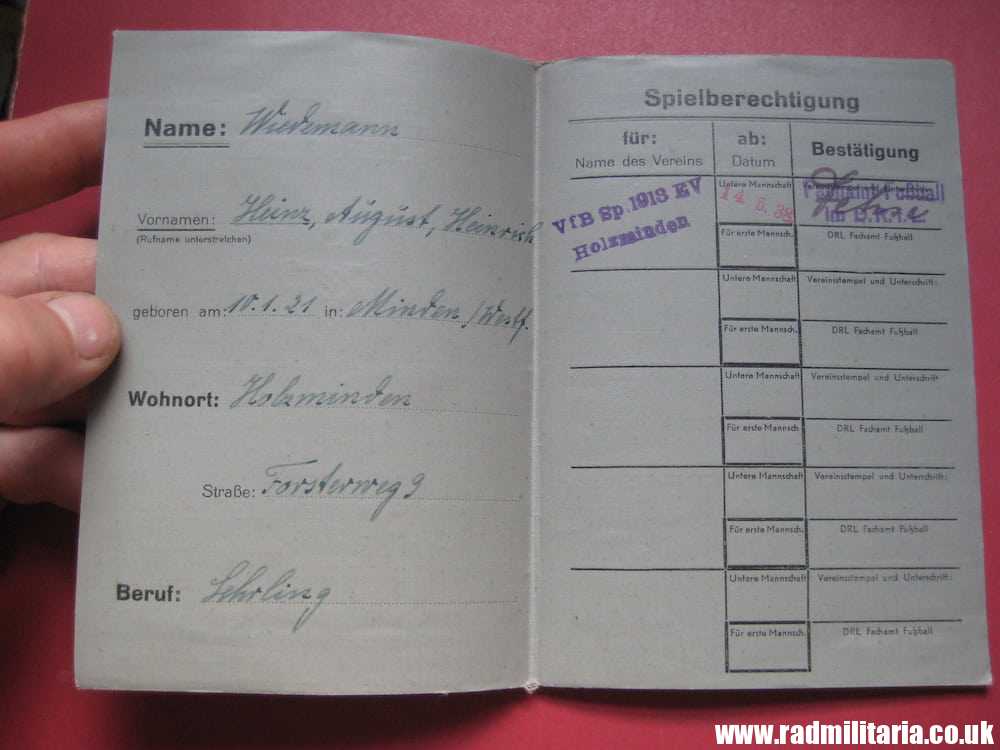 Name: Wiedemann
Vornamen: Heinz, August, Heinrich
(Rufname unterstreichen)
geboren am: 10.1.21 in: Minden/Westf.
Wohnort: Holzminden
Straße: Forsterweg 9
Beruf: Lehrling
Spielberechtigung
für:
Name des Vereins
ab:
Datum
Bestätigung
VfB Sp. 1913 EV
Holzminden
Untere Mannschaft
14 5. 38
Fachamt Fußball
im D.R.L.
Für erste Mannsch.
DRL Fachamt Fußball
Untere Mannschaft
Vereinsstempel und Unterschrift:
Für erste Mannsch.
DRL Fachamt Fußball
Untere Mannschaft
Vereinsstempel und Unterschrift:
Für erste Mannsch.
DRL Fachamt Fußball
Untere Mannschaft
Vereinsstempel und Unterschrift:
Für erste Mannsch.
DRL Fachamt Fußball
Untere Mannschaft
Vereinsstempel und Unterschrift:
Für erste Mannsch.
DRL Fachamt Fußball
www.radmilitaria.co.uk